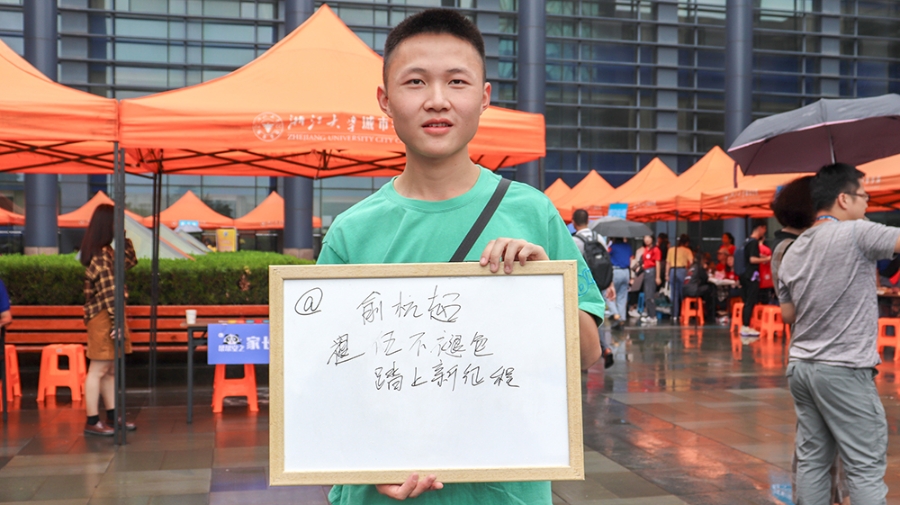 浙江大学城市
ZHEJIANG UNIVERSITY CITY
@ 俞杭超
退伍不褪色
踏上新征程